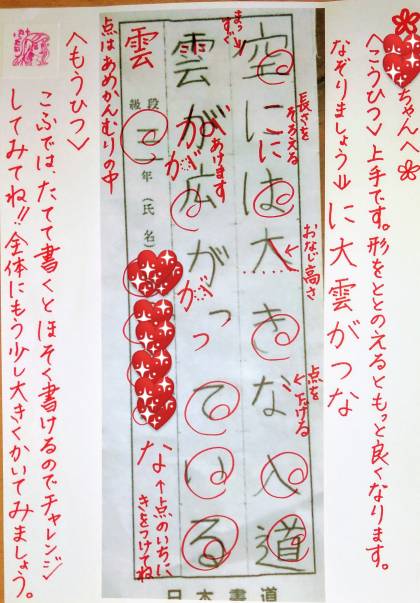 ちゃんへ
〈こうひつ〉上手です。形をととのえるともっと良くなります。
なぞりましょう↓に大雲がつな
空には大きな入道
雲が広がっている
まっすぐ
長さをそろえる
おなじ高さ
点を下げる
あけます
が
が
に
雲
点はあめかんむりの中
段
級
二
年
(氏名)
な←点のいちにきをつけてね
日本書道
〈もうひつ〉
こふでは、たてて書くとほそく書けるのでチャレンジ
してみてね!!全体にもう少し大きくかいてみましょう。